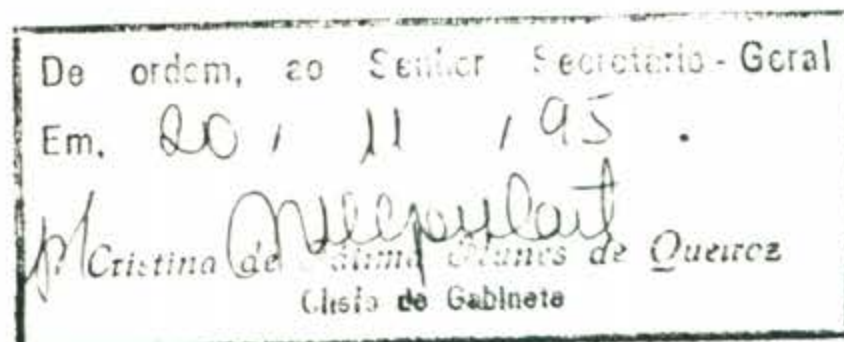 De ordem, ao Senhor Secretário - Geral
Em, 20 / 11 / 95 .
p/ Cristina de Fátima Nunes de Queiroz
Chefe de Gabinete